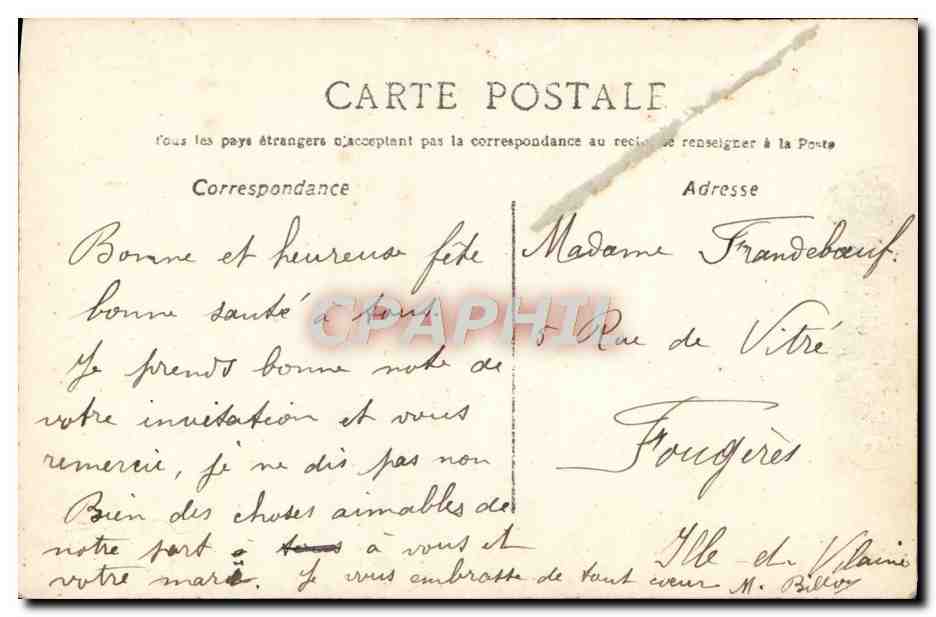 CARTE POSTALE
Tous les pays étrangers n'acceptent pas la correspondance au recto, se renseigner à la Poste
Correspondance
Adresse
Bonne et heureuse fête
bonne santé à tous.
Je prends bonne note de
votre invitation et vous
remercie, je ne dis pas non
Bien des choses aimables de
notre part à tous à vous et
votre mari. Je vous embrasse de tout cœur
M. Billoy
Madame Frandebœuf.
5 Rue de Vitré
Fougères
Ille et Vilaine
CPAPHIL